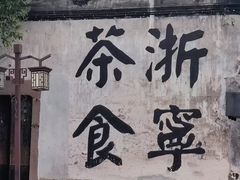 浙寧
茶食